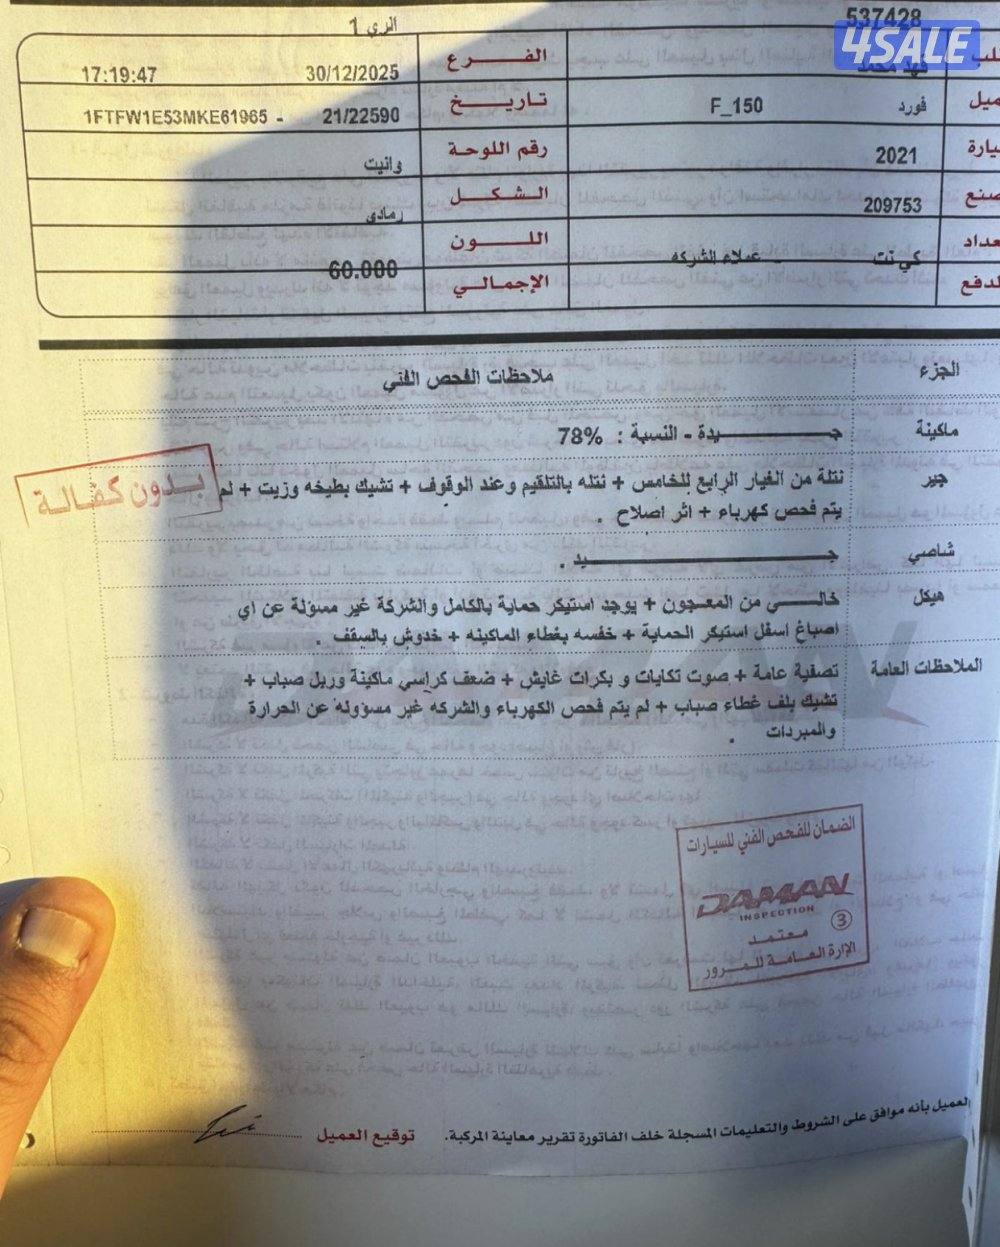 الري 1
537428
4SALE
الفـــرع
30/12/2025 17:19:47
فهد محمد
تاريـــخ
1FTFW1E53MKE61965 - 21/22590
فورد F_150
رقم اللوحة
وانيت
2021
الشـــكل
رمادي
209753
اللـــون
60.000
كي نت
عملاء الشركه
الإجمالـــي
الجزء
ملاحظات الفحص الفني
ماكينة
جـــــــيدة - النسبة : 78%
جير
نتلة من الغيار الرابع للخامس + نتله بالتلقيم وعند الوقوف + تشيك بطيخه وزيت + لم
يتم فحص كهرباء + اثر اصلاح .
بدون كفالة
شاصي
جـــــــــيد .
هيكل
خالـــى من المعجون + يوجد استيكر حماية بالكامل والشركة غير مسؤلة عن اي
اصباغ اسفل استيكر الحماية + خفسه بغطاء الماكينه + خدوش بالسقف .
الملاحظات العامة
تصفية عامة + صوت تكايات و بكرات غايش + ضعف كراسي ماكينة وربل صباب +
تشيك بلف غطاء صباب + لم يتم فحص الكهرباء والشركه غير مسؤوله عن الحرارة
والمبردات .
الضمان للفحص الفني للسيارات
DAMAN
INSPECTION
3
معتمد
الإدارة العامة للمرور
العميل بأنه موافق على الشروط والتعليمات المسجلة خلف الفاتورة تقرير معاينة المركبة.
توقيع العميل